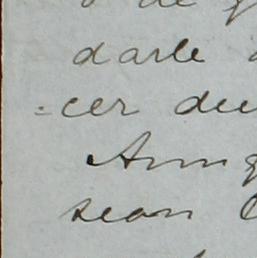 o de
darle
=cer deu
Aunq
sean